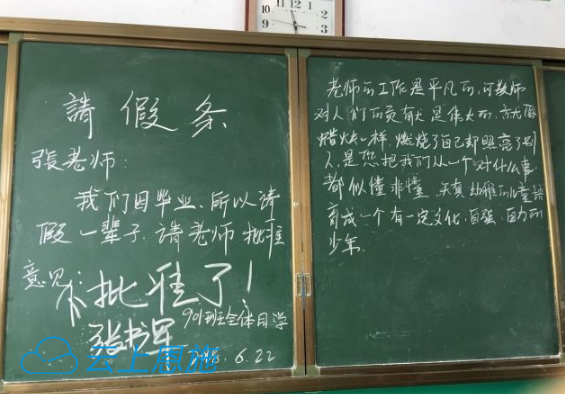 請假条
張老师:
我们因毕业,所以请
假一辈子.請老师批准
意见:
不批准了!
901班全体同学
张书军
6.22
老师的工作是平凡的,可教师
对人们的贡献是伟大的,就像
蜡烛一样,燃烧了自己却照亮了别
人,是您把我们从一个对什么事
都似懂非懂,天真幼稚的儿童培
育成一个有一定文化,自强,自力的
少年.
云上恩施
12
11
10
9
8